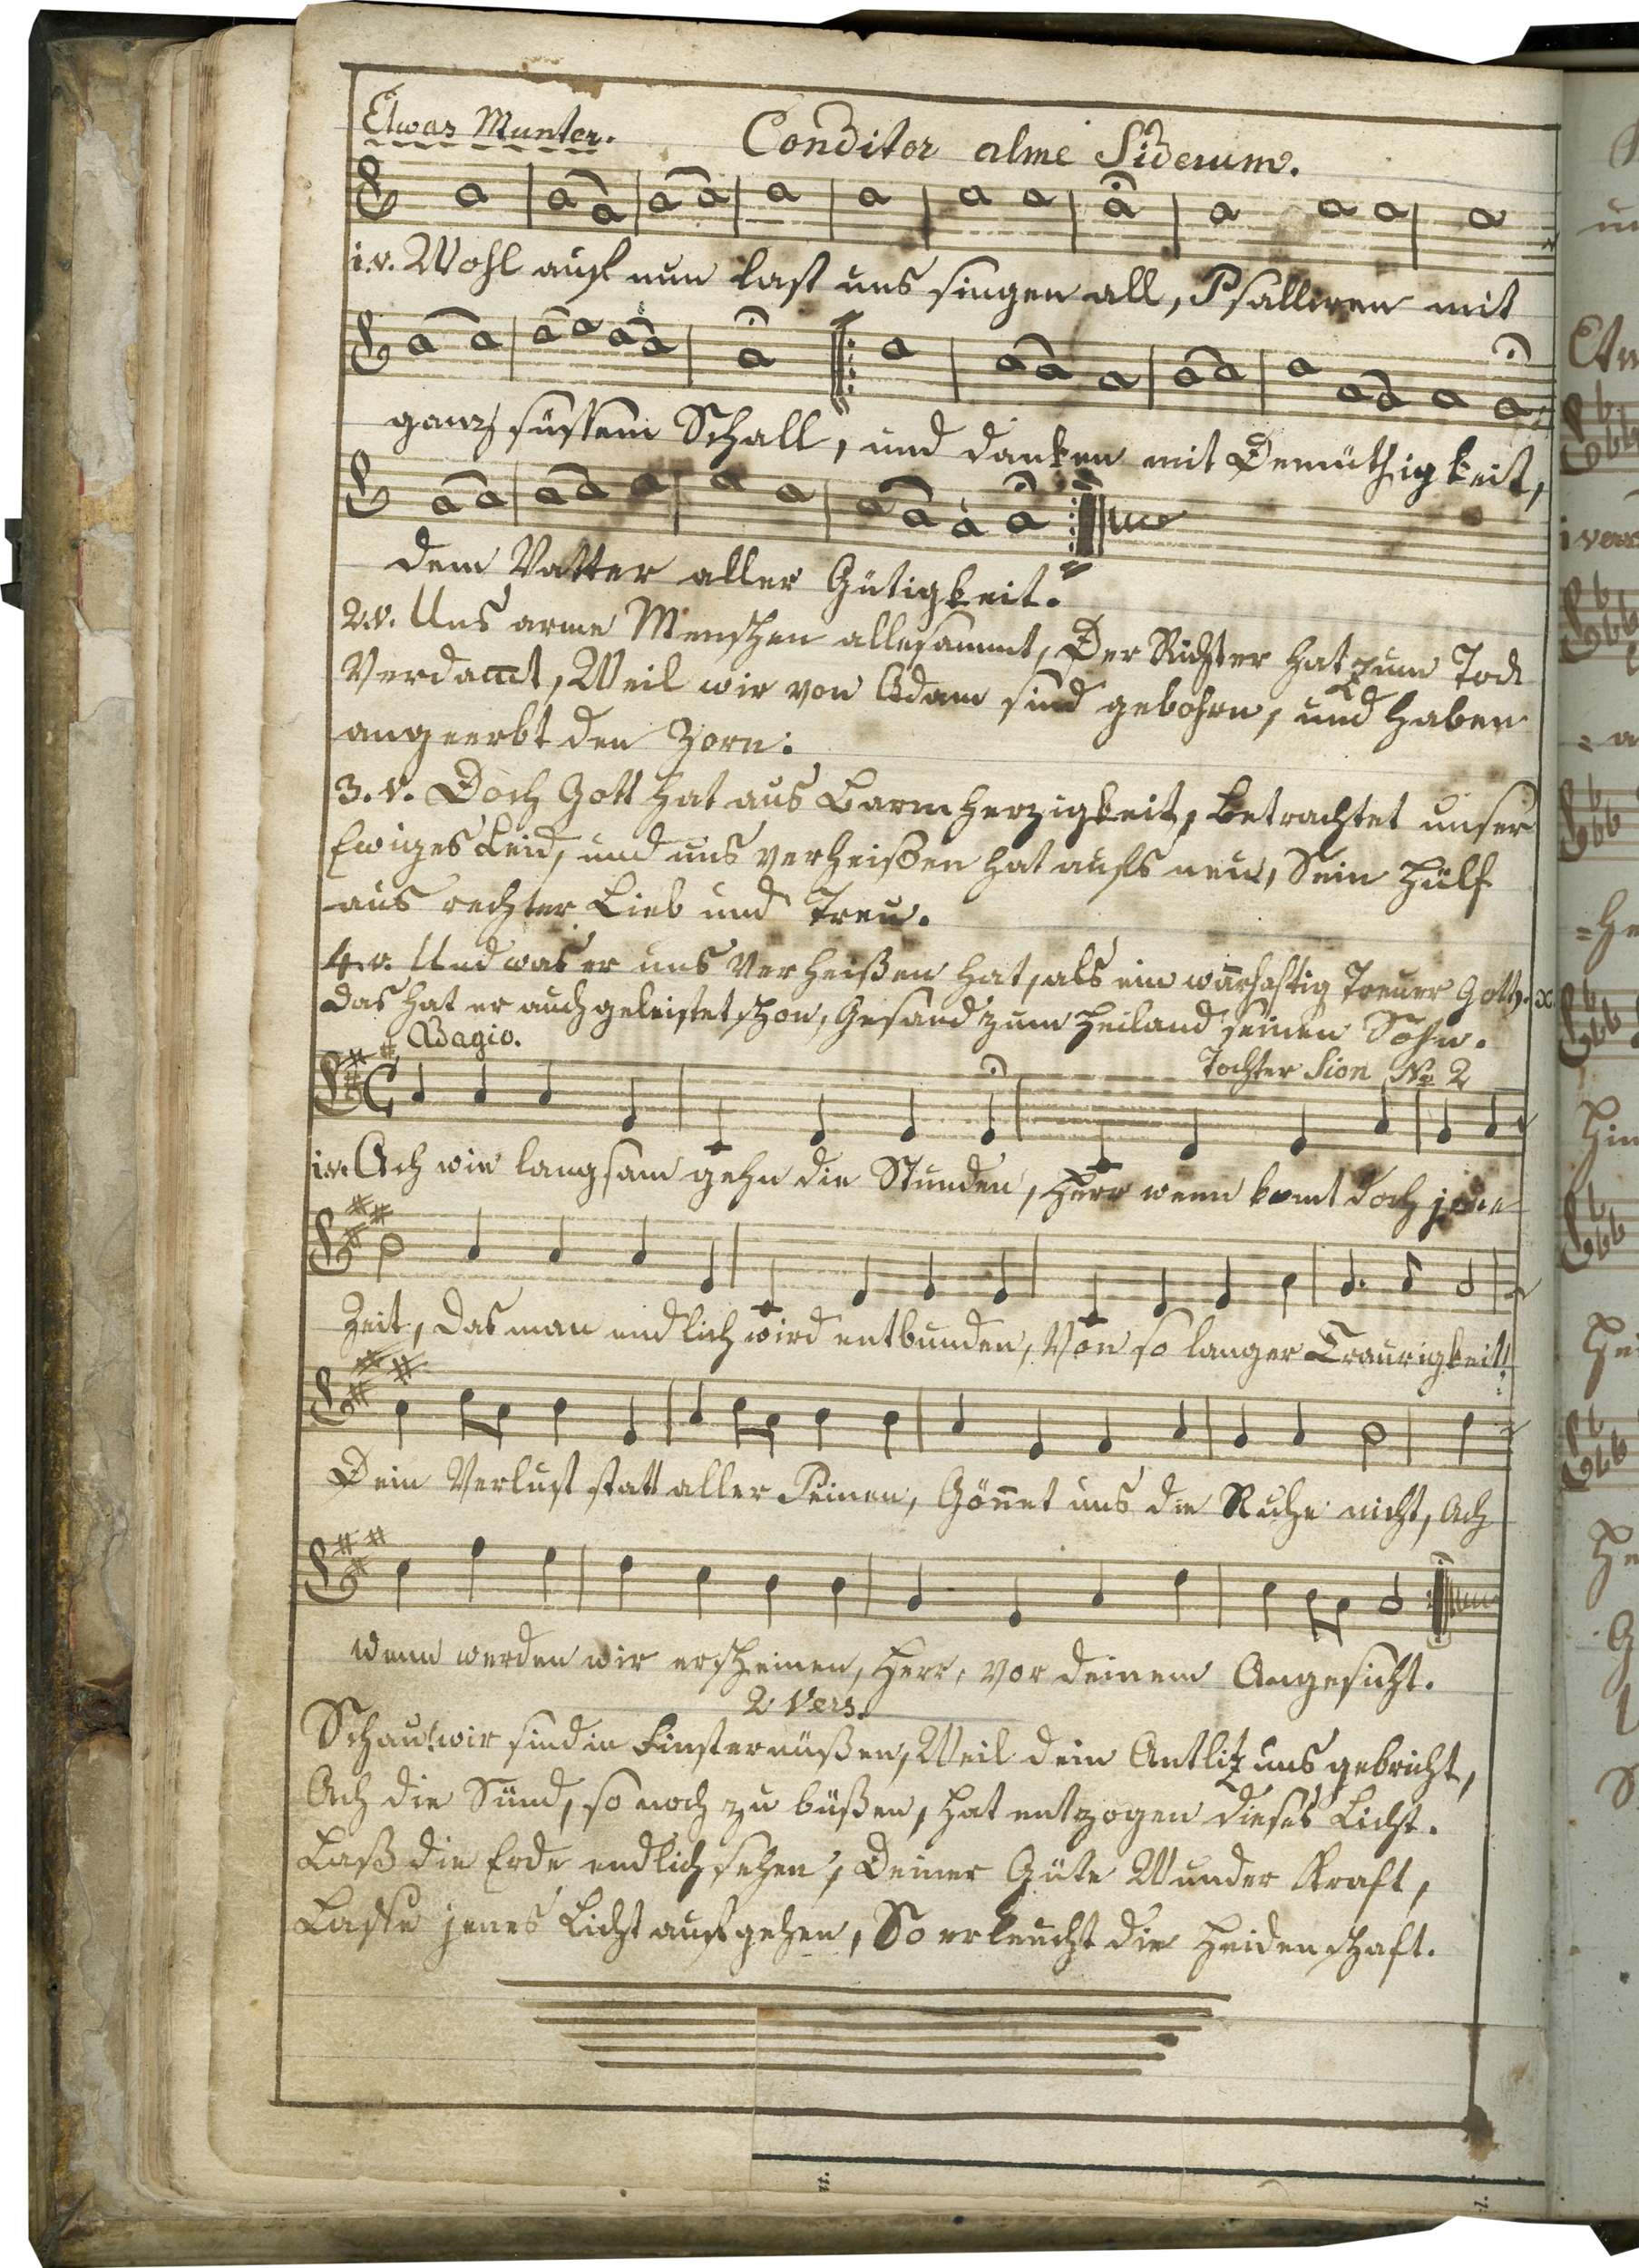 Etwas Munter. Conditor alme Siderum.
1.v. Wohl auf nun last uns singen all, Psalliren mit
ganz süssem Schall, und danken mit Demüthigkeit,
dem Vatter aller Gütigkeit.
2.v. Uns arme Menschen allesammt, Der Richter hat zum Tod
Verdammt, Weil wir von Adam sind gebohrn, und haben
angeerbt den Zorn.
3.v. Doch Gott hat aus Barmherzigkeit, Betrachtet unser
Ewiges Leid, und uns verheißen hat aufs neu, Sein Hülf
aus rechter Lieb und Treu.
4.v. Und was er uns Verheißen hat, als ein warhaftig Treuer Gott,
Das hat er auch geleistet schon, Gesand zum Heiland seinen Sohn.
Adagio. Tochter Sion No 2
1.v. Ach wie langsam gehn die Stunden, Herr wenn komt doch jene
Zeit, Das man endlich wird entbunden, Von so langer Traurigkeit!
Dein Verlust statt aller Peinen, Gönnet uns die Ruhe nicht, Ach
wenn werden wir erscheinen, Herr, vor deinem Angesicht.
2 Vers.
Schau! wir sind in Finsternüßen, Weil dein Antlitz uns gebricht,
Ach die Sünd, so noch zu büßen, hat entzogen dieses Licht.
Laß die Erde endlich sehen, Deiner Güte Wunder Kraft,
Lasse jenes Licht aufgehen, So erleucht die Heidenschaft.